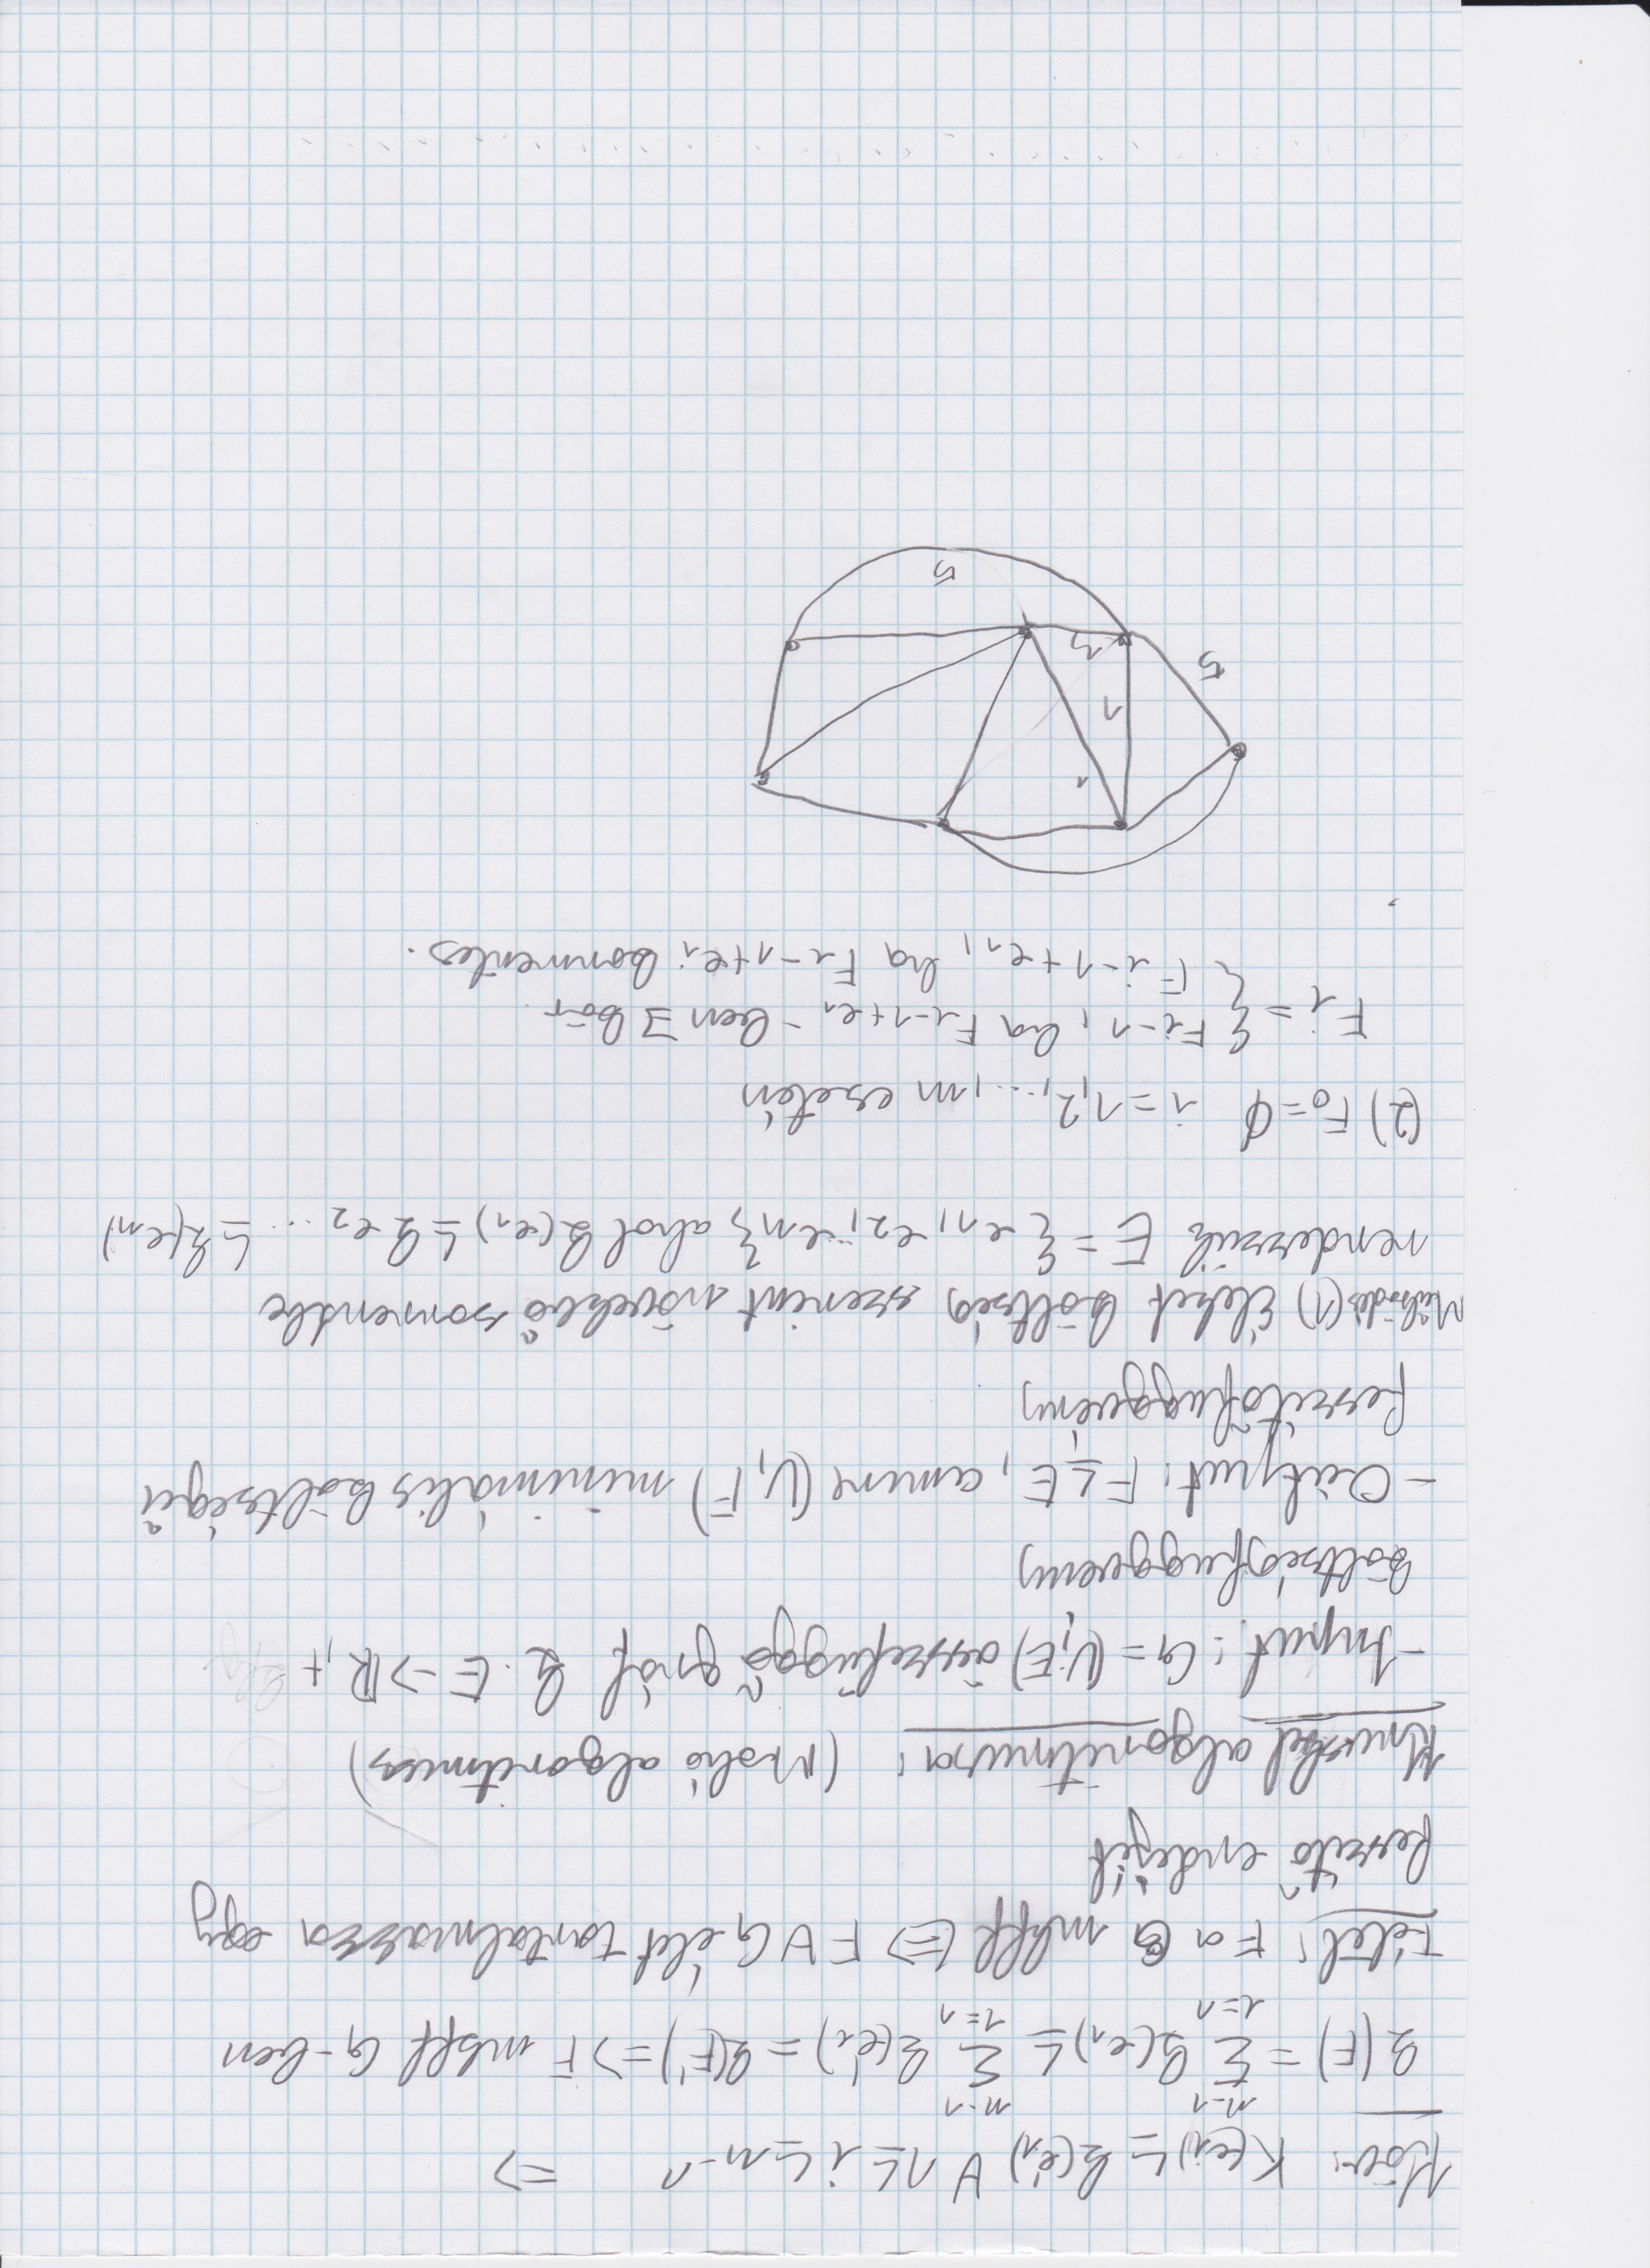 Köv: K(ei) ≤ k(e'i) ∀ 1 ≤ i ≤ n-1 ⇒
k(F) = n-1 Σ i=1 k(ei) ≤ n-1 Σ i=1 k(e'i) = k(F') ⇒ F mkff G-ben
Tétel: F a G mkff ⇔ F ∀ G élét tartalmazza egy
feszítő erdejét
Kruskal algoritmusa: (Mohó algoritmus)
- Input: G = (V,E) összefüggő gráf k: E → R+
költségfüggvény
- Output: F ⊆ E, amire (V,F) minimális költségű
feszítőfüggvény
Működés (1) Éleket költség szerint növekvő sorrendbe
rendezzük E = {e1, e2, ... en} ahol k(e1) ≤ k e2 ... ≤ k(en)
(2) F0 = ∅ i = 1,2, ..., m esetén
Fi = { Fi-1, ha Fi-1+ei -ben ∃ kör
{ Fi-1+ei, ha Fi-1+ei körmentes.
1
1
3
5
5